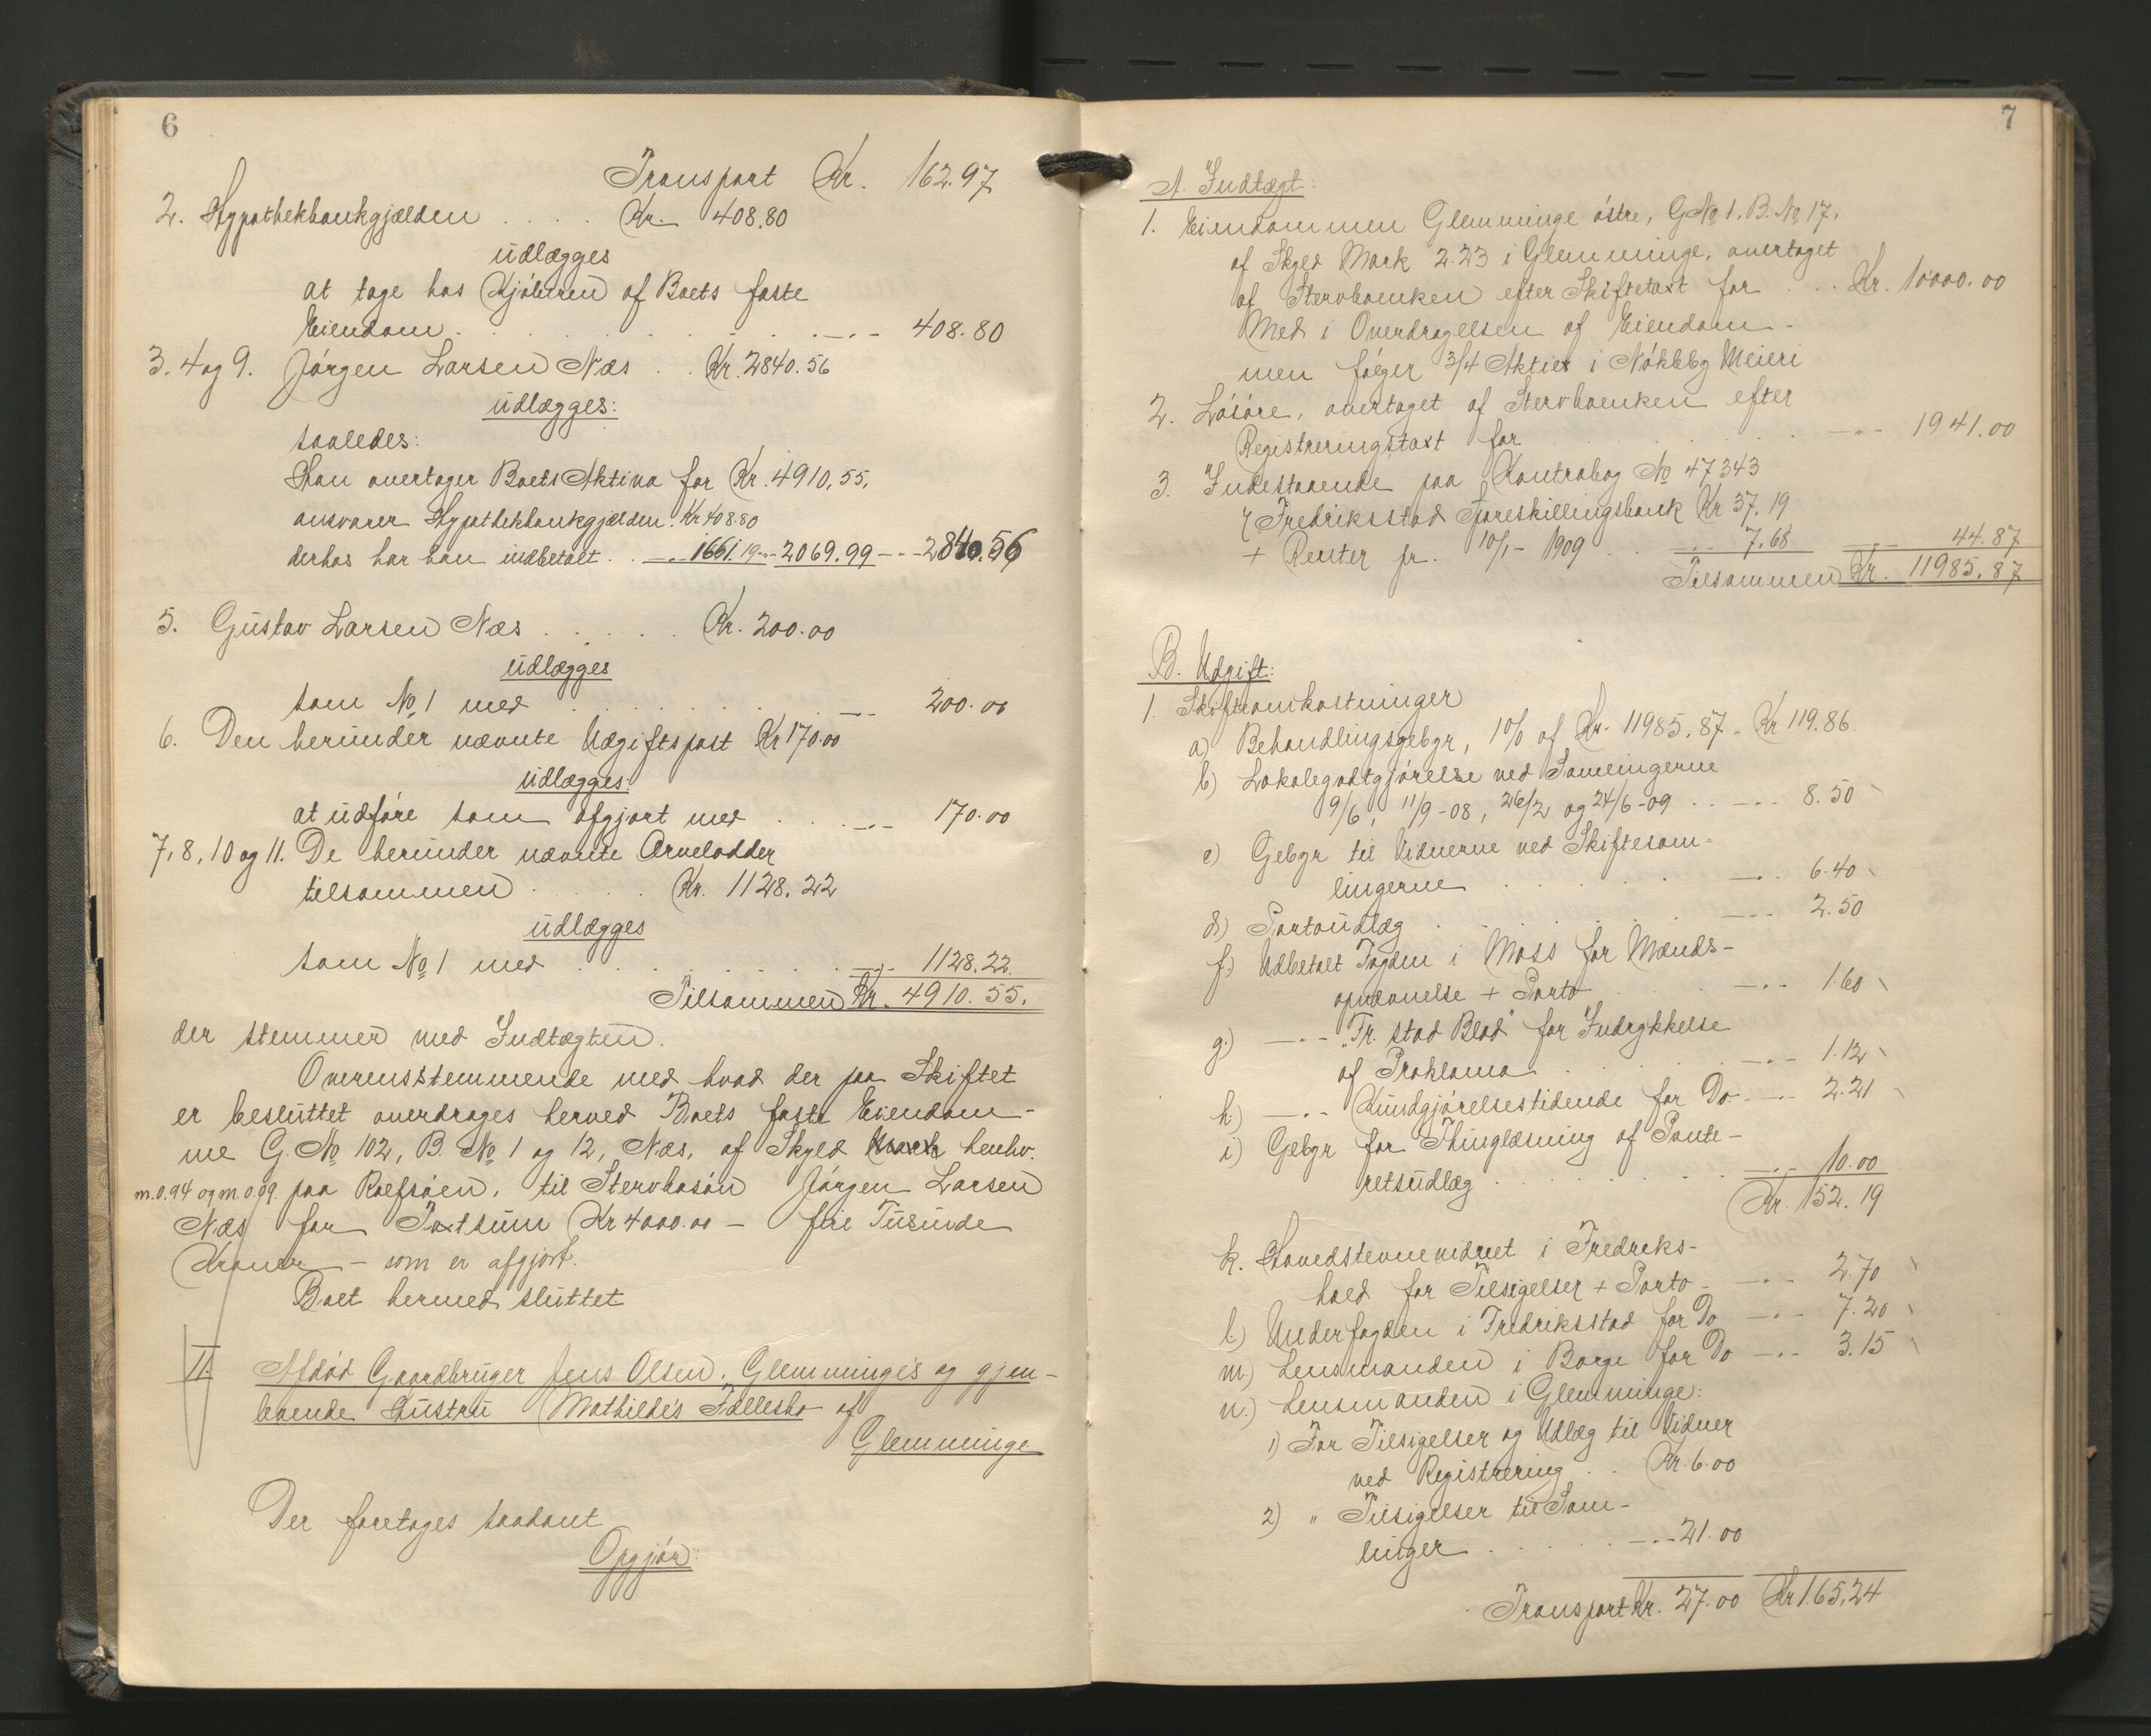 6
Transport Kr. 162.97
2. Hypothekbankgjælden . . . . Kr. 408.80
udlægges
at tage hos Kjøberen af Boets faste
Eiendom . . . . . . . . . -"- 408.80
3. 4 og 9. Jørgen Larsen Næs . . Kr. 2840.56
udlægges:
saaledes:
Han overtager Boets Aktiva for Kr. 4910.55,
ansvarer Hypothekbankgjælden. Kr 408.80
derhos har han indbetalt . . -"- 1661.19 -"- 2069.99 -"- 2840.56
5. Gustav Larsen Næs . . . . . Kr. 200.00
udlægges
som No 1 med . . . . . . . -"- 200.00
6. Den herunder nævnte Udgiftspost Kr 170.00
udlægges:
at udføre som afgjort med . . . -"- 170.00
7, 8, 10 og 11. De herunder nævnte Arvelodder
tilsammen . . . . . Kr. 1128.22
udlægges
som No 1 med . . . . . . . -"- 1128.22
Tilsammen Kr. 4910.55.
der stemmer med Indtægten.
Overensstemmende med hvad der paa Skiftet
er besluttet overdrages herved Boets faste Eiendom-
me G. No 102, B. No 1 og 12, Næs, af Skyld Mark henhv.
m. 0.94 og m. 0.09. paa Rolfsøen, til Stervbosøn Jørgen Larsen
Næs for Taxtsum Kr 4000.00 - fire Tusinde
Kroner - som er afgjort.
Boet hermed sluttet
II. Afdød Gaardbruger Jens Olsen. Glemminge's og gjen-
levende Hustru Mathilde's Fællesbo af
Glemminge
Der foretages saadant
Opgjør:
7
A. Indtægt:
1. Eiendommen Glemminge østre, G No 1. B. No 17,
af Skyld Mark 2.23 i Glemminge, overtaget
af Stervboenken efter Skiftetaxt for . . . Kr. 10000.00
Med i Overdragelsen af Eiendom-
men følger 3/4 Aktier i Nøkleby Meieri
2. Løsøre, overtaget af Stervboenken efter
Registreringstaxt for . . . . . . -"- 1941.00
3. Indestaaende paa Kontrabog No 47343
i Fredriksstad Spareskillingsbank Kr 37.19
+ Renter pr. 10/1 - 1909 . . -"- 7.68 -"- 44.87
Tilsammen Kr. 11985.87
B. Udgift:
1. Skifteomkostninger
a) Behandlingsgebyr, 1 0/0 af Kr. 11985.87. Kr 119.86
b) Lokalegodtgjørelse ved Samlingerne
9/6, 11/9-08, 26/2 og 24/6-09 . . -"- 8.50
c) Gebyr til Vidnerne ved Skiftesam-
lingerne . . . . . . -"- 6.40
d) Portoudlæg . . . . . . -"- 2.50
f.) Udbetalt Fogden i Moss for Mænds-
opnævnelse + Porto . . . . -"- 1.60
g.) -"- "Fr.stad Blad" for Indrykkelse
af Proklama . . . . . -"- 1.12
h.) -"- Kundgjørelsestidende for Do -"- 2.21
i) Gebyr for Thinglæsning af Pante-
retsudlæg . . . . . . . -"- 10.00
Kr. 152.19
k. Hovedstevnevidnet i Fredriks-
hald for Tilsigelser + Porto -"- 2.70
l.) Underfogden i Fredriksstad for Do -"- 7.20
m.) Lensmanden i Borge for Do -"- 3.15
n.) Lensmanden i Glemminge:
1) For Tilsigelser og Udlæg til Vidner
ved Registrering . . Kr. 6.00
2) " Tilsigelser til Sam-
linger . . . . . -"- 21.00
Transport Kr. 27.00 Kr 165.24